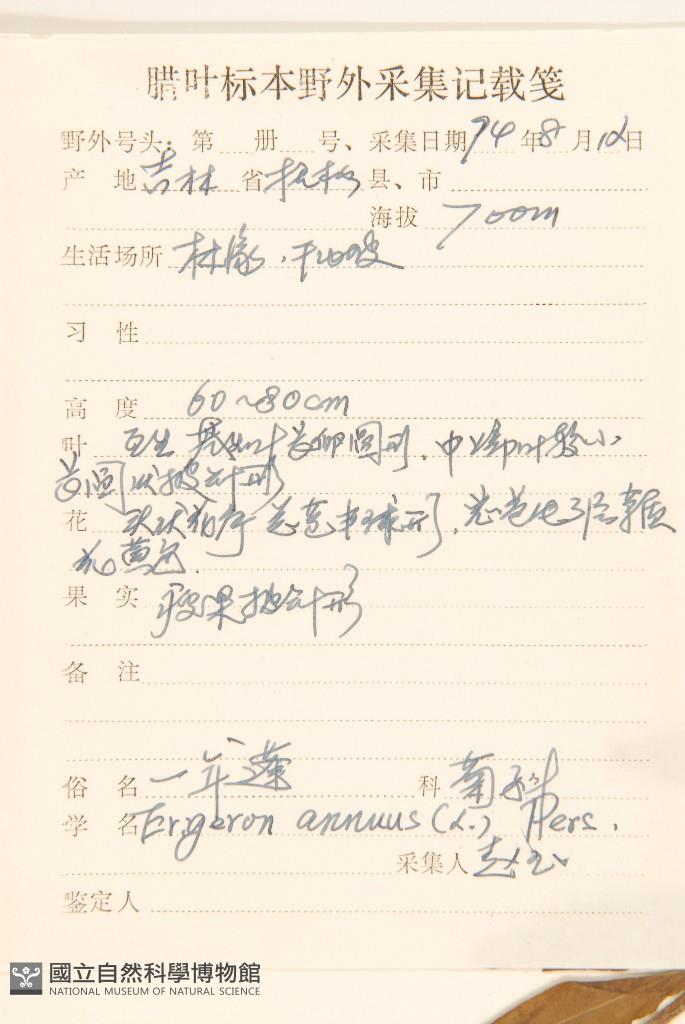 腊叶标本野外采集记载笺
野外号头：第 册 号、采集日期 94 年 8 月 12 日
产 地 吉林 省 抚松 县、市
海拔 700m
生活场所 林缘，干山坡
习 性
高 度 60~80cm
叶 互生 基生叶长卵圆形，中上部叶较小
长圆状披针形
花 头状花序 总苞半球形，总苞片3层 草质
花黄色．
果 实 瘦果披针形
备 注
俗 名 一年蓬 科 菊科
学 名 Erigeron annuus (L.) Pers.
采集人 赵
鉴定人
國立自然科學博物館
NATIONAL MUSEUM OF NATURAL SCIENCE